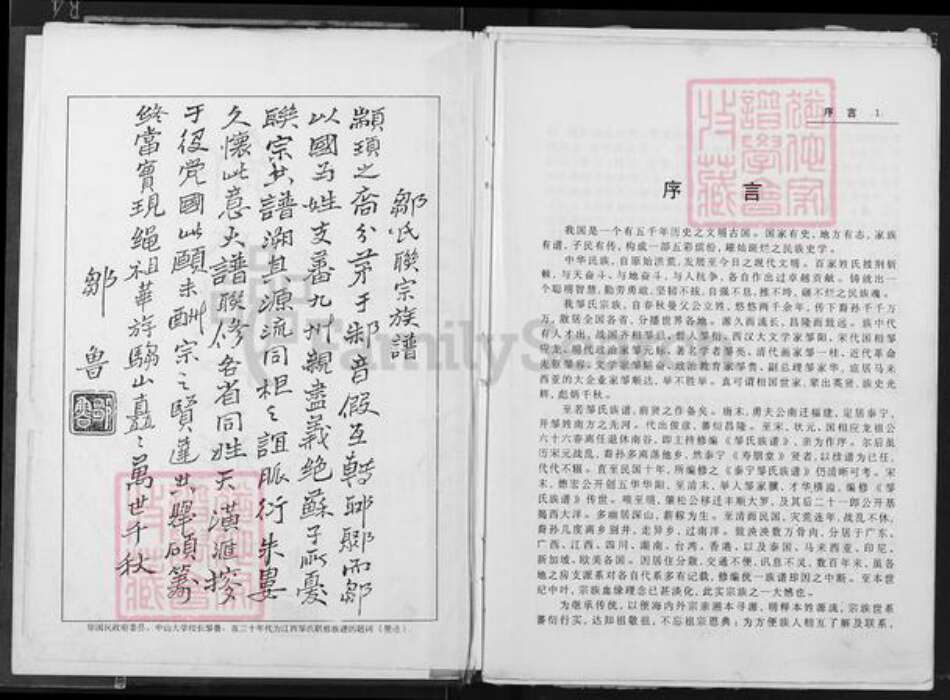 鄒氏聯宗族譜
顓頊之裔分茅于邾音假互轉邾鄹而鄒
以國为姓支蕃九州親盡義绝蘇子所憂
聯宗共譜溯其源流同根之誼脈衍朱婁
久懷此意大譜聯修各省同姓天潢滙
于役党國此願未酬宗之賢達共舉碩籌
終當實現绳祖華旂騶山矗矗萬世千秋
鄒魯
序言 1
序言
我国是一个有五千年历史之文明古国。国家有史,地方有志,家族
有谱,子民有传,构成一部五彩缤纷,璀灿斑烂之民族史学。
中华民族,自原始洪荒,发展至今日之现代文明。百家姓氏披荆斩
棘,与天奋斗、与地奋斗、与人抗争,各自作出过卓越贡献。铸就出一
个聪明智慧,勤劳勇敢,坚韧不拔,自强不息,推不垮,砸不烂之民族魂。
我邹氏宗族,自春秋曼父公立姓,悠悠两千余年,传下裔孙千千万
万,散居全国各省,分播世界各地。源久而流长,昌隆而鼓远。族中代
有人才出,战国齐相邹忌、哲人邹衍、西汉大文学家邹阳、宋代国相邹
应龙、明代政治家邹元标、著名学者邹亮、清代画家邹一桂、近代革命
先驱邹容、文学家邹韬奋、政治教育家邹鲁、副总理邹家华,旅居马来
西亚的大企业家邹顺达,举不胜举。真可谓相国世家,辈出英贤,族史光
辉,彪炳千秋。
至若邹氏族谱,前贤之作备矣。唐末,勇夫公南迁福建,定居泰宁,
开邹姓南方之先河。代出俊彦,蕃衍昌隆。至宋,状元、国相应龙祖公
六十六春离任退休南谷,即主持修编《邹氏族谱》,亲为作序。尔后虽
历宋元战乱,裔孙多离荡他乡,然泰宁《寿胭堂》贤者,以续谱为已任,
代代不辍。直至民国十年,所编修之《泰宁邹氏族谱》仍清晰可考。宋
末,德宏公开创五华华阳,至清末,举人邹家骥,才华横溢,编修《邹
氏族谱》传世。嗅至明,肇松公移迁丰顺大罗,及其后二十一郎公开基
蕉西大洋。多幽居深山,薪稼为生。至清而民国,灾荒连年,战乱不休,
裔孙几度离乡别井,走异乡,过南洋。致泱泱数万骨肉,分居于广东、
广西、江西、四川、湖南、台湾、香港,以及泰国、马来西亚、印尼、
新加坡、欧美各国。因居住分散,交通不便,讯息不灵,数百年来,虽各
地之房支派系对各自代系多有记载,修编统一族谱却因之中断。至本世
纪中叶,宗族血缘理念已甚淡化,此实宗族之一大憾也。
为继承传统,以便海内外宗亲溯本寻源,明释本姓源流,宗族世系
蕃衍行实,达知祖敬祖,不忘祖宗恩典;为方便族人相互了解及联系,
FamilySearch